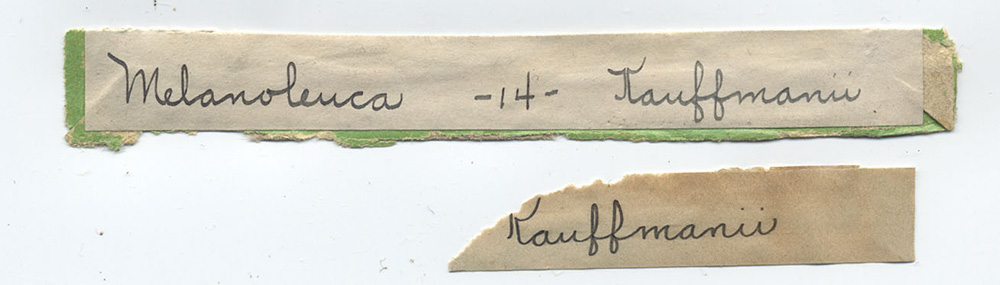 Melanoleuca -14- Kauffmanii
Kauffmanii